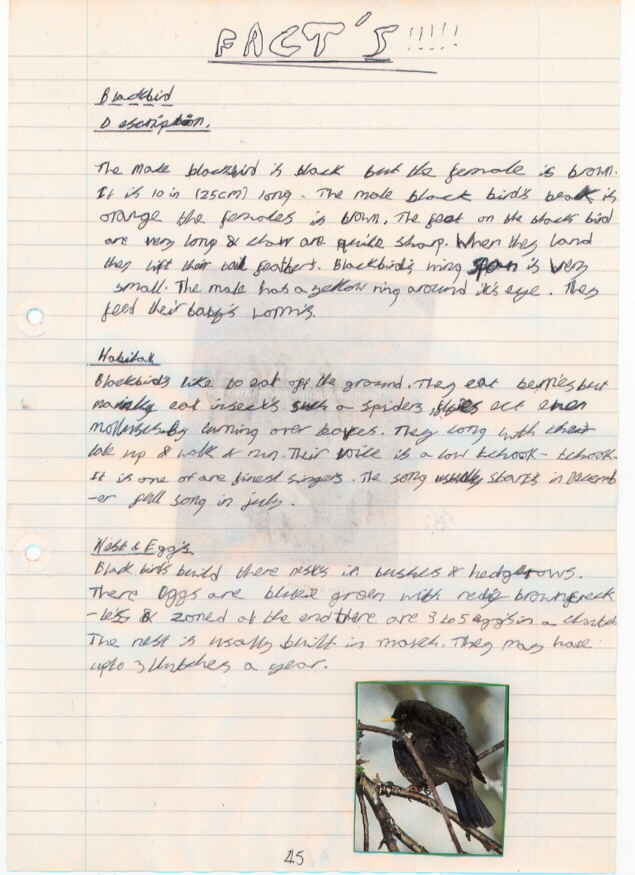 FACT'S !!!!!
Blackbird
Description.
The male blackbird is black but the female is brown.
It is 10 in (25cm) long. The male black bird's beak is
orange the females is brown. The feet on the black bird
are very long & claw are quite sharp. When they land
they lift their tail feathers. Blackbird's wing span is very
small. The male has a yellow ring around it's eye. They
feed their baby's worms.
Habitat
Blackbirds like to eat off the ground. They eat berries but
mainly eat insects such a spiders, flies ect even
by turning over leaves. They long with their
up & walk & run. Their voice is a low tchook - tchook.
It is one of are finest singers. The song usually starts in Decemb
-er full song in july.
Nest & Egg's
Black birds build there nests in bushes & hedgerows.
There eggs are green with redy brown freck
-less & zoned at the end there are 3 to 5 egg's in a clutch
The nest is usally built in march. They may have
upto 3 clutches a year.
45